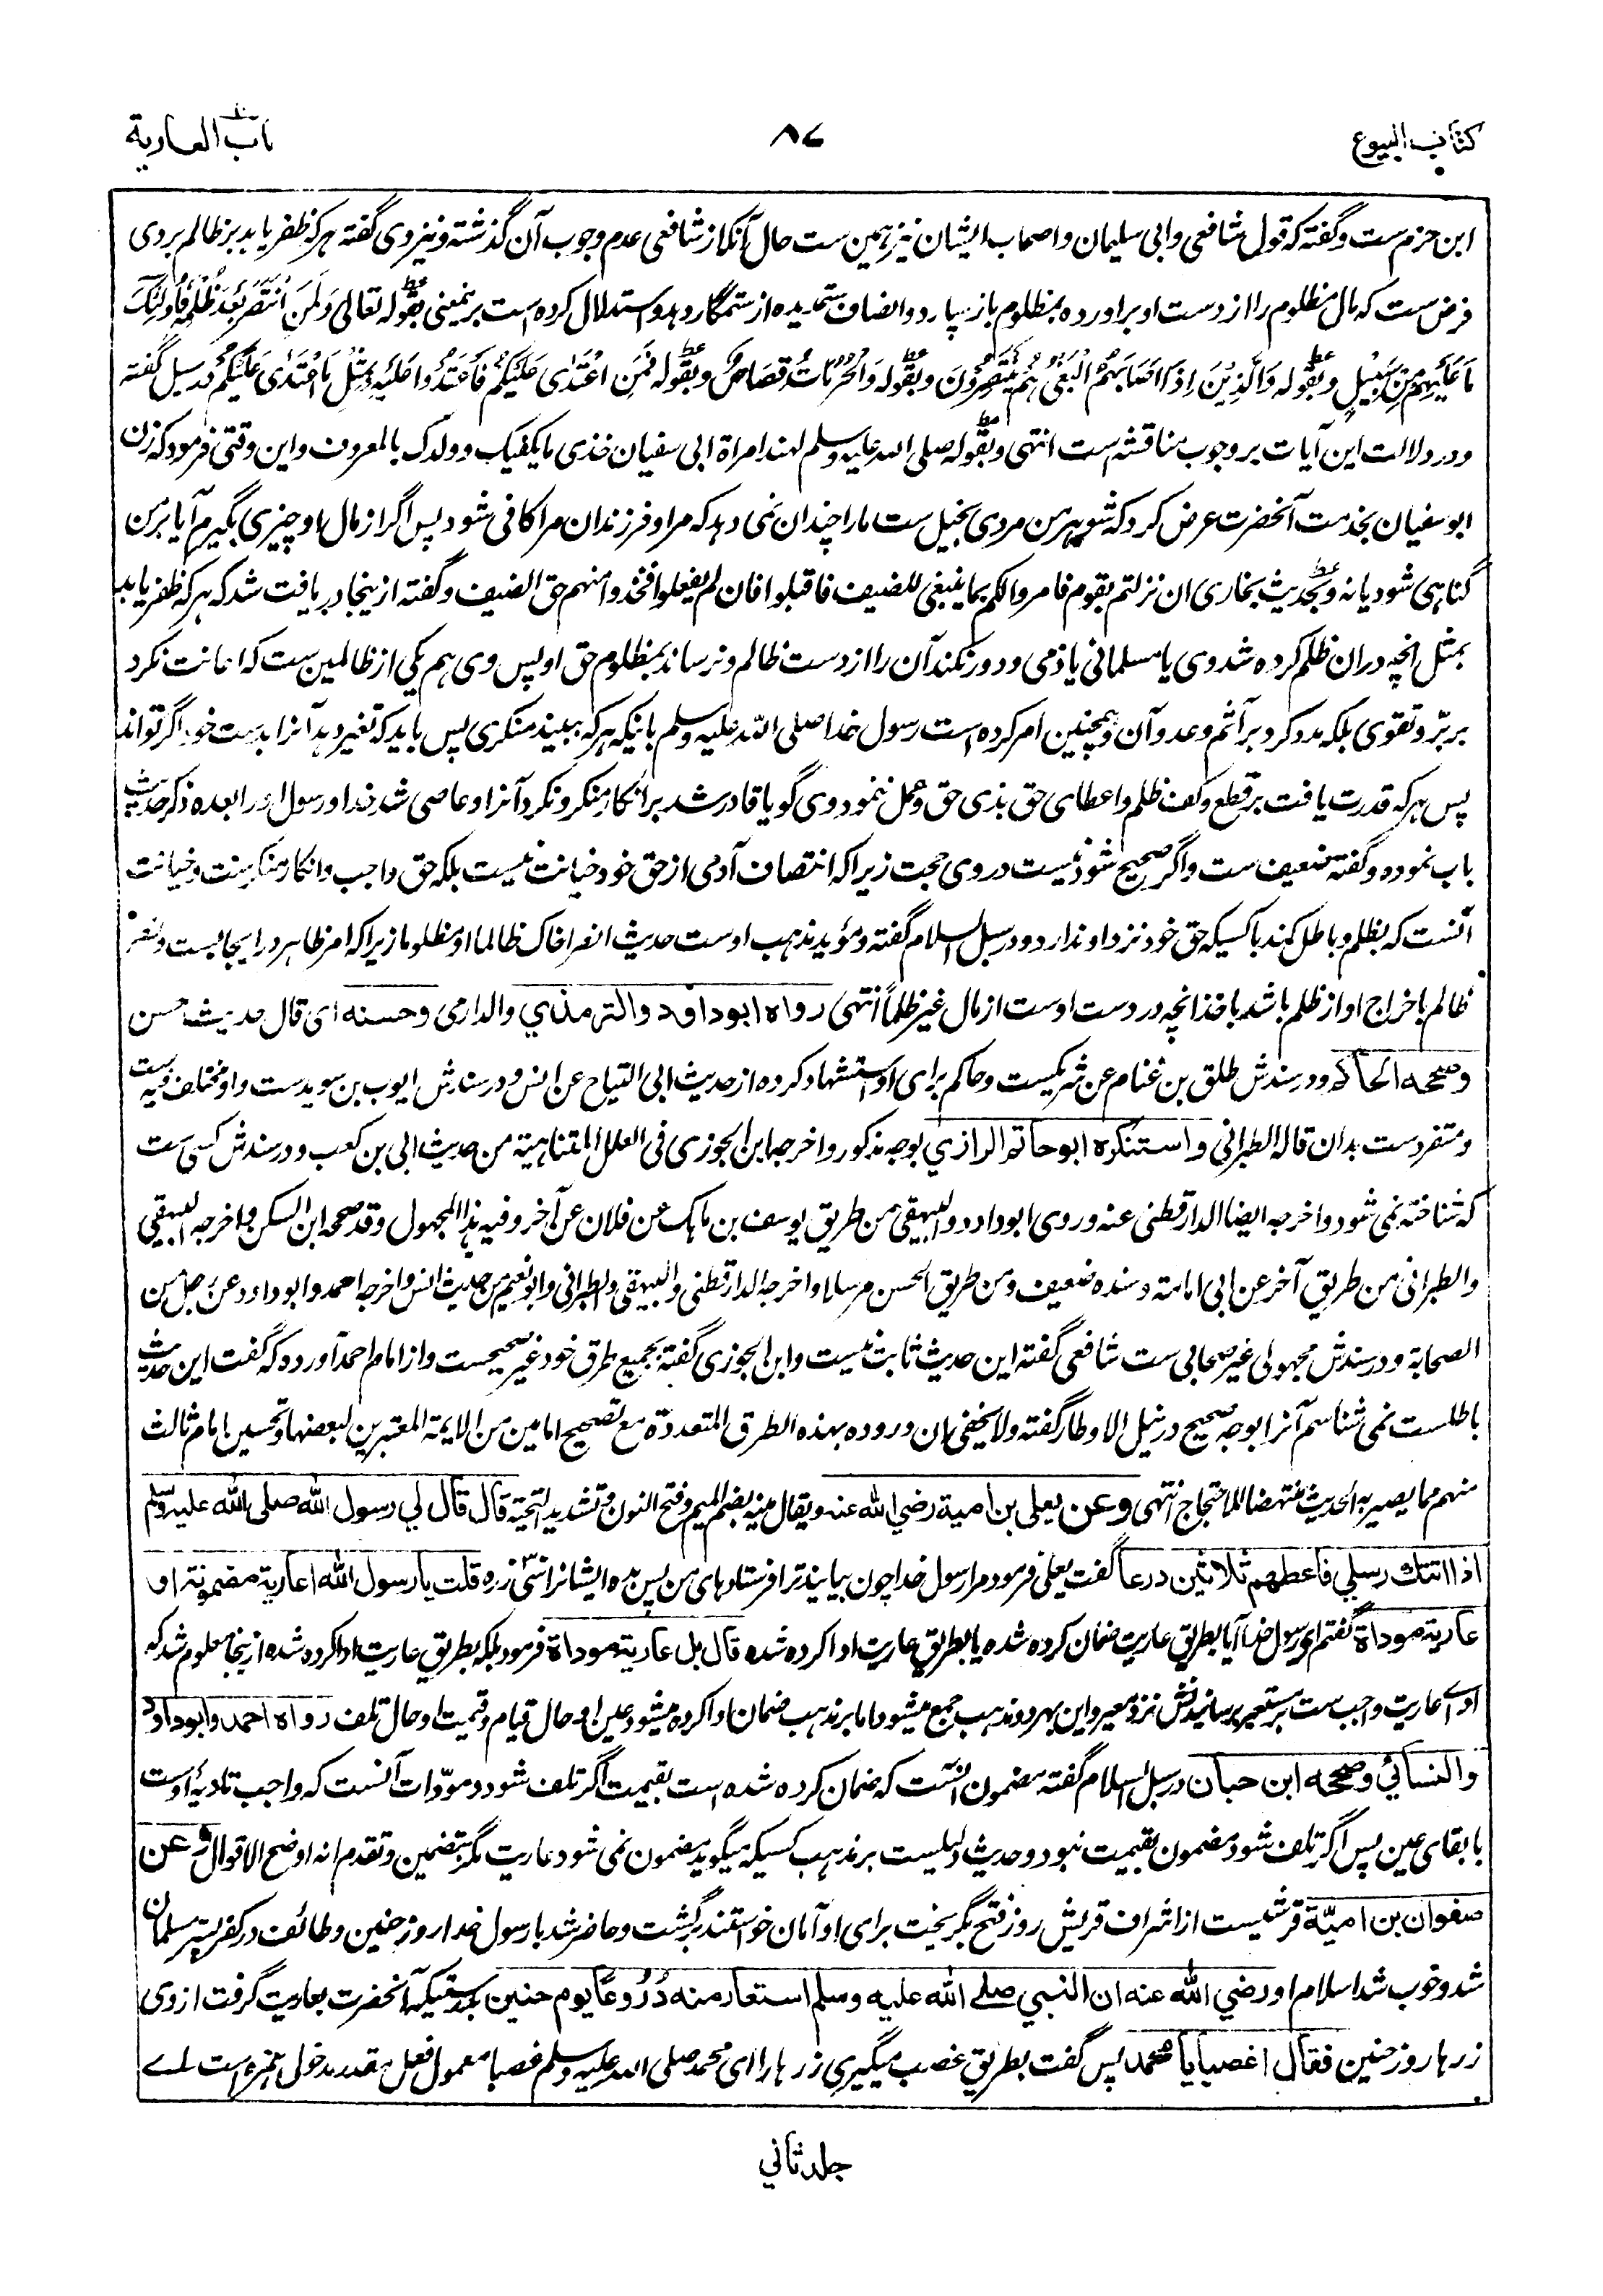 كتاب البيوع
٨٧
باب العارية
ابن حزم ست و گفته که قول شافعی و ابی سلیمان و اصحاب ایشان نیز همین ست حال آنکه از شافعی عدم وجوب آن گذشته و نیز وی گفته هر که ظفر یابد بر ظالم بر وی
فرض ست که مال مظلوم را از دست او براورده بمظلوم باز سپارد و انصاف ستمدیده از ستمگار دهد و استدلال کرده است بر نمیعنی بقوله تعالی وَلَمَنِ انْتَصَرَ بَعْدَ ظُلْمِهٖ فَأُولٰئِكَ
مَا عَلَيْهِمْ مِنْ سَبِيْلٍ و بقوله وَالَّذِيْنَ اِذَا اَصَابَهُمُ الْبَغْيُ هُمْ يَنْتَصِرُوْنَ و بقوله وَالْحُرُمَاتُ قِصَاصٌ و بقوله فَمَنِ اعْتَدٰى عَلَيْكُمْ فَاعْتَدُوا عَلَيْهِ بِمِثْلِ مَا اعْتَدٰى عَلَيْكُمْ در سبل گفته
و در دلالت این آیات بر وجوب مناقشه است انتهی و بقوله صلی الله علیه وسلم لهند امراة ابی سفیان خذی ما یکفیک و ولدک بالمعروف و این وقتی فرمود که زن
ابو سفیان بخدمت آنحضرت عرض کرد که شوهر من مردی بخیل ست مارا چندان نمی دهد که مرا و فرزندان مرا کافی شود پس اگر از مال او چیزی بگیرم آیا بر من
گناهی شود یا نه و بحدیث بخاری ان نزلتم بقوم فامروا لکم بما ینبغی للضیف فاقبلوا فان لم یفعلوا فخذوا منهم حق الضیف و گفته از ینجا دریافت شد که هر که ظفر یابد
بمثل انچه دران ظلم کرده شد وی یا مسلمانی یا ذمی و دور نکند آن را از دست ظالم و نرساند بمظلوم حق او پس وی هم یکی از ظالمین ست که اعانت نکرد
بر برّ و تقوی بلکه مدد کرد بر اثم و عدوان و همچنین امر کرده است رسول خدا صلی الله علیه وسلم بانیکه هر که ببیند منکری پس باید که تغیر دهد آنرا بدست خود اگر تواند
پس هر که قدرت یافت بر قطع و کف ظلم و اعطای حق بذی حق و عمل ننمود وی گویا قادر شد بر انکار منکر و نکرد آنرا و عاصی شد خدا و رسول او را بعده ذکر حدیث
باب نموده و گفته ضعیف ست و اگر صحیح شود نیست در وی حجت زیرا که انتصاف آدمی از حق خود خیانت نیست بلکه حق واجب و انکار منکرست و خیانت
آنست که بظلم و باطل کند با کسیکه حق خود نزد او ندارد و در سبل السلام گفته و مؤید مذهب اوست حدیث انصر اخاک ظالما او مظلوما زیرا که امر ظاهر در ایجابست و نصر
ظالم باخراج او از ظلم باشد باخذ انچه در دست اوست از مال غیر ظلماً انتهی رواه ابوداود والترمذي والدارمی وحسنه ای قال حدیث حسن
وصححه الحاكم و در سندش طلق بن غنام عن شریکست و حاکم برای او استشهاد کرده از حدیث ابی التیاح عن انس و در سندش ایوب بن سویدست و او مختلف فیه ست
و متفردست بدان قاله الطبرانی واستنكره ابوحاتم الرازي بوجه مذکور و اخرجه ابن الجوزی فی العلل المتناهیة من حدیث ابی بن کعب و در سندش کسی ست
که شناخته نمی شود و اخرجه ایضا الدارقطنی عنه و روی ابوداود و البیهقی من طریق یوسف بن ماهک عن فلان عن آخر و فیه هذا المجهول و قد صححه ابن السکن و اخرجه البیهقی
والطبرانی من طریق آخر عن ابی امامة و سنده ضعیف و من طریق الحسن مرسلا و اخرجه الدارقطنی و البیهقی و الطبرانی و ابو نعیم من حدیث انس و اخرجه احمد و ابوداود عن رجل من
الصحابة و در سندش مجهولی غیر صحابی ست شافعی گفته این حدیث ثابت نیست و ابن الجوزی گفته بجمیع طرق خود غیر صحیحست و از امام احمد آورده که گفت این حدیث
باطلست نمی شناسم آنرا بوجه صحیح در نیل الاوطار گفته ولا یخفی ان وروده بهذه الطرق المتعددة مع تصحیح امامین من الایمة المعتبرین لبعضها و تحسین امام ثالث
منهم مما یصیر به الحدیث منتهضا للاحتجاج انتهی وعن يعلى بن امية رضي الله عنه و یقال منیه بضم المیم و فتح النون و تشدید التحتیة قال قال لي رسول الله صلى الله عليه وسلم
اذا اتتك رسلي فاعطهم ثلاثين درعا گفت یعلی فرمود مرا رسول خدا چون بیایند ترا فرستادهای من پس بده ایشانرا سی زره قلت يا رسول الله اعارية مضمونة او
عارية موداة گفتم ای رسول خدا آیا بطریق عاریت ضمان کرده شده یا بطریق عاریت ادا کرده شده قال بل عارية موداة فرمود بلکه بطریق عاریت ادا کرده شده از ینجا معلوم شد که
ادای عاریت واجب ست بر مستعیر برسانیدنش نزد معیر و این بهر دو مذهب جمع میشود اما بر مذهب ضمان ادا کرده میشود عین او حال قیام و قیمت او حال تلف رواه احمد وابوداود
والنسائي وصححه ابن حبان در سبل السلام گفته مضمون آنست که ضمان کرده شده است بقیمت اگر تلف شود و موّدات آنست که واجب تادیهٔ اوست
با بقای عین پس اگر تلف شود مضمون بقیمت نبود و حدیث دلیلست بر مذهب کسیکه میگوید مضمون نمی شود عاریت مگر بتضمین و تقدم انه اوضح الاقوال وعن
صفوان بن اميّة قرشیست از اشراف قریش روز فتح بگریخت برای او امان خواستند برگشت و حاضر شد با رسول خدا روز حنین و طائف در کفر پستر مسلمان
شد و خوب شد اسلام او رضي الله عنه ان النبي صلے الله عليه وسلم استعار منه دُرُوعًا يوم حنين بدرستیکه آنحضرت بعاریت گرفت از وی
زرها روز حنین فقال اغصبا يا محمد پس گفت بطریق غصب میگیری زرها را ای محمد صلی الله علیه وسلم غصبا معمول فعل مقدر مدخول همزه است اے
جلد ثاني